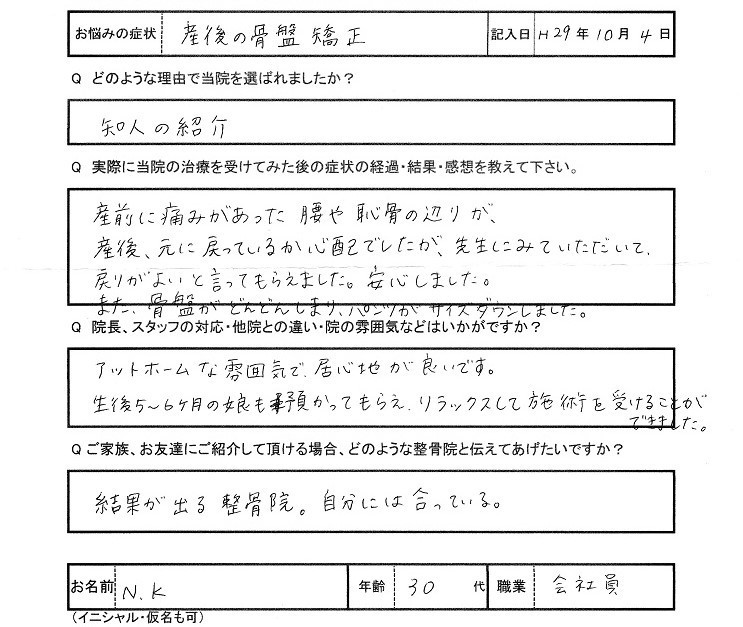 お悩みの症状 産後の骨盤矯正 記入日 H29年10月4日
Q どのような理由で当院を選ばれましたか？
知人の紹介
Q 実際に当院の治療を受けてみた後の症状の経過・結果・感想を教えて下さい。
産前に痛みがあった腰や恥骨の辺りが、
産後、元に戻っているか心配でしたが、先生にみていただいて、
戻りがよいと言ってもらえました。安心しました。
また、骨盤がどんどんしまり、パンツがサイズダウンしました。
Q 院長、スタッフの対応・他院との違い・院の雰囲気などはいかがですか？
アットホームな雰囲気で、居心地が良いです。
生後5～6ヶ月の娘も預かってもらえ、リラックスして施術を受けることが
できました。
Q ご家族、お友達にご紹介して頂ける場合、どのような整骨院と伝えてあげたいですか？
結果が出る整骨院。自分には合っている。
お名前 N.K 年齢 30 代 職業 会社員
（イニシャル・仮名も可）